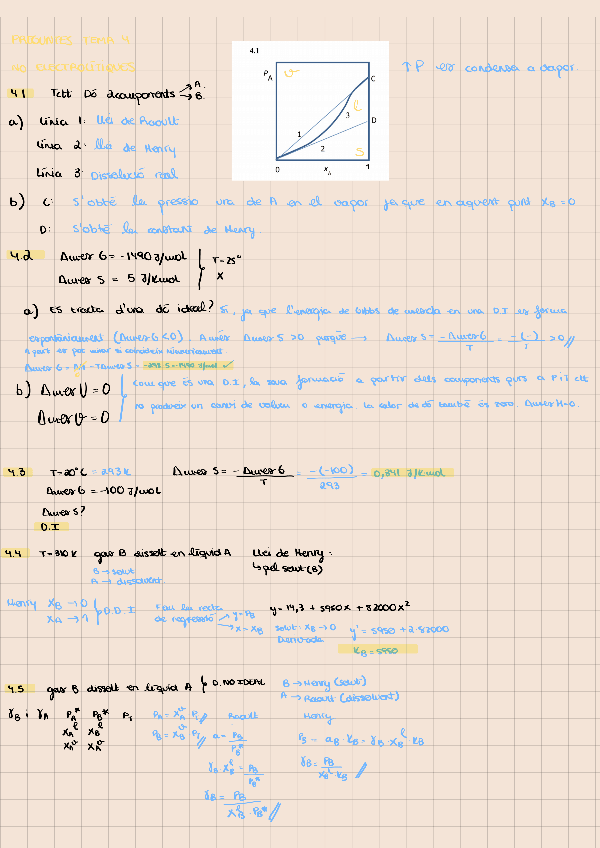 PREGUNTES TEMA 4.
NO ELECTROLÍTIQUES
4.1 Tctt Dó 2components → A. → B.
a) Línia 1: Llei de Raoult
Línia 2: Llei de Henry
Línia 3: Dissolució real
4.1
P_A
v
C
l
D
3
1
2
s
0
x_A
1
↑P es condensa a vapor.
b) C: S'obté la pressió de A en el vapor ja que en aquest punt X_B=0
D: S'obté la constant de Henry.
4.2 Δmesc G = -1490 J/mol
T=25°
Δmesc S = 5 J/Kmol
X
a) Es tracta d'una dó ideal? Sí, ja que l'energia de Gibbs de mescla en una D.I es forma
espontàniament (Δmesc G <0). A més Δmesc S >0 perquè → Δmesc S = -Δmesc G / T = -(-) / >0 //
A part es pot mirar si coincideix numèricament.
Δmesc G = - TΔmesc S = -298·5 = -1490 J/mol ✓
b) Δmesc U = 0
Δmesc V = 0
Com que és una D.I, la seva formació a partir dels components purs a P i T ctt
no produeix un canvi de volum o energia. La calor de dó també és zero Δmesc H=0.
4.3 T=20°C = 293K
Δmesc S = -Δmesc G / T = -(-100) / 293 = 0,341 J/Kmol
Δmesc G = -100 J/mol
Δmesc S?
D.I
4.4 T=310K gas B dissolt en líquid A Llei de Henry:
↳ pel solut (B)
B → solut
A → dissolvent.
Henry X_B → 0
X_A → 1
D.D.I
Fou la recta de regressió → y = P_B → x = X_B
y = 14,3 + 5950x + 82000x²
solut: X_B → 0
Derivada
y' = 5950 + 2·82000
K_B = 5950
4.5 gas B dissolt en líquid A D.NO IDEAL
B → Henry (solut)
A → Raoult (dissolvent)
γ_B i γ_A P_A* P_B* P_i
X_A^l X_B^l
X_A^v X_A^v
P_A = X_A^v P_i //
P_B = X_B^v P_i //
Raoult
a = P_B / P_B*
γ_B · X_B^l = P_B / P_B*
γ_B = P_B / X_B^l · P_B* //
Henry
P_B = a_B · K_B = γ_B · X_B^l · K_B
γ_B = P_B / X_B^l · K_B //